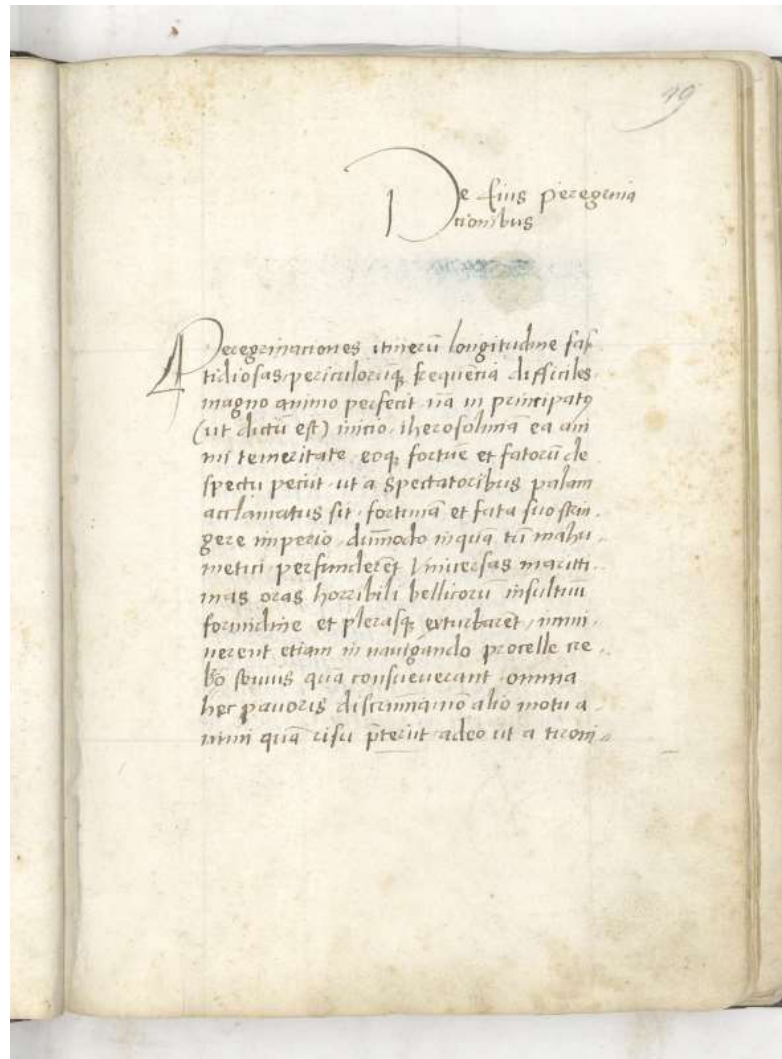 49
De Eius peregrina
tionibus
Peregrinaciones itinerū longitudine fas
tidiosas, periculorūq frequēcia difficiles
magno animo perfecit nā in principatꝰ
(ut dictū est) inicio, iherosolimā ea ani
mi temeritate eoq fortūe et fatorū de
spectu peciit ut a spectatoribus palam
acclamatus sit fortunā et fata suo strin
gere imperio, dūmodo inquā tū mahu
metici perfunderēt Universas maritti
mas oras horribili bellicorū insultuū
formidine et plerasq exturbarēt, immi
nerent etiam in navigando procelle cre
bro quā consueverant omnia
hec pavoris discrimina nō alio motu a
nimi quā risu p̄teriit adeo ut a tironi